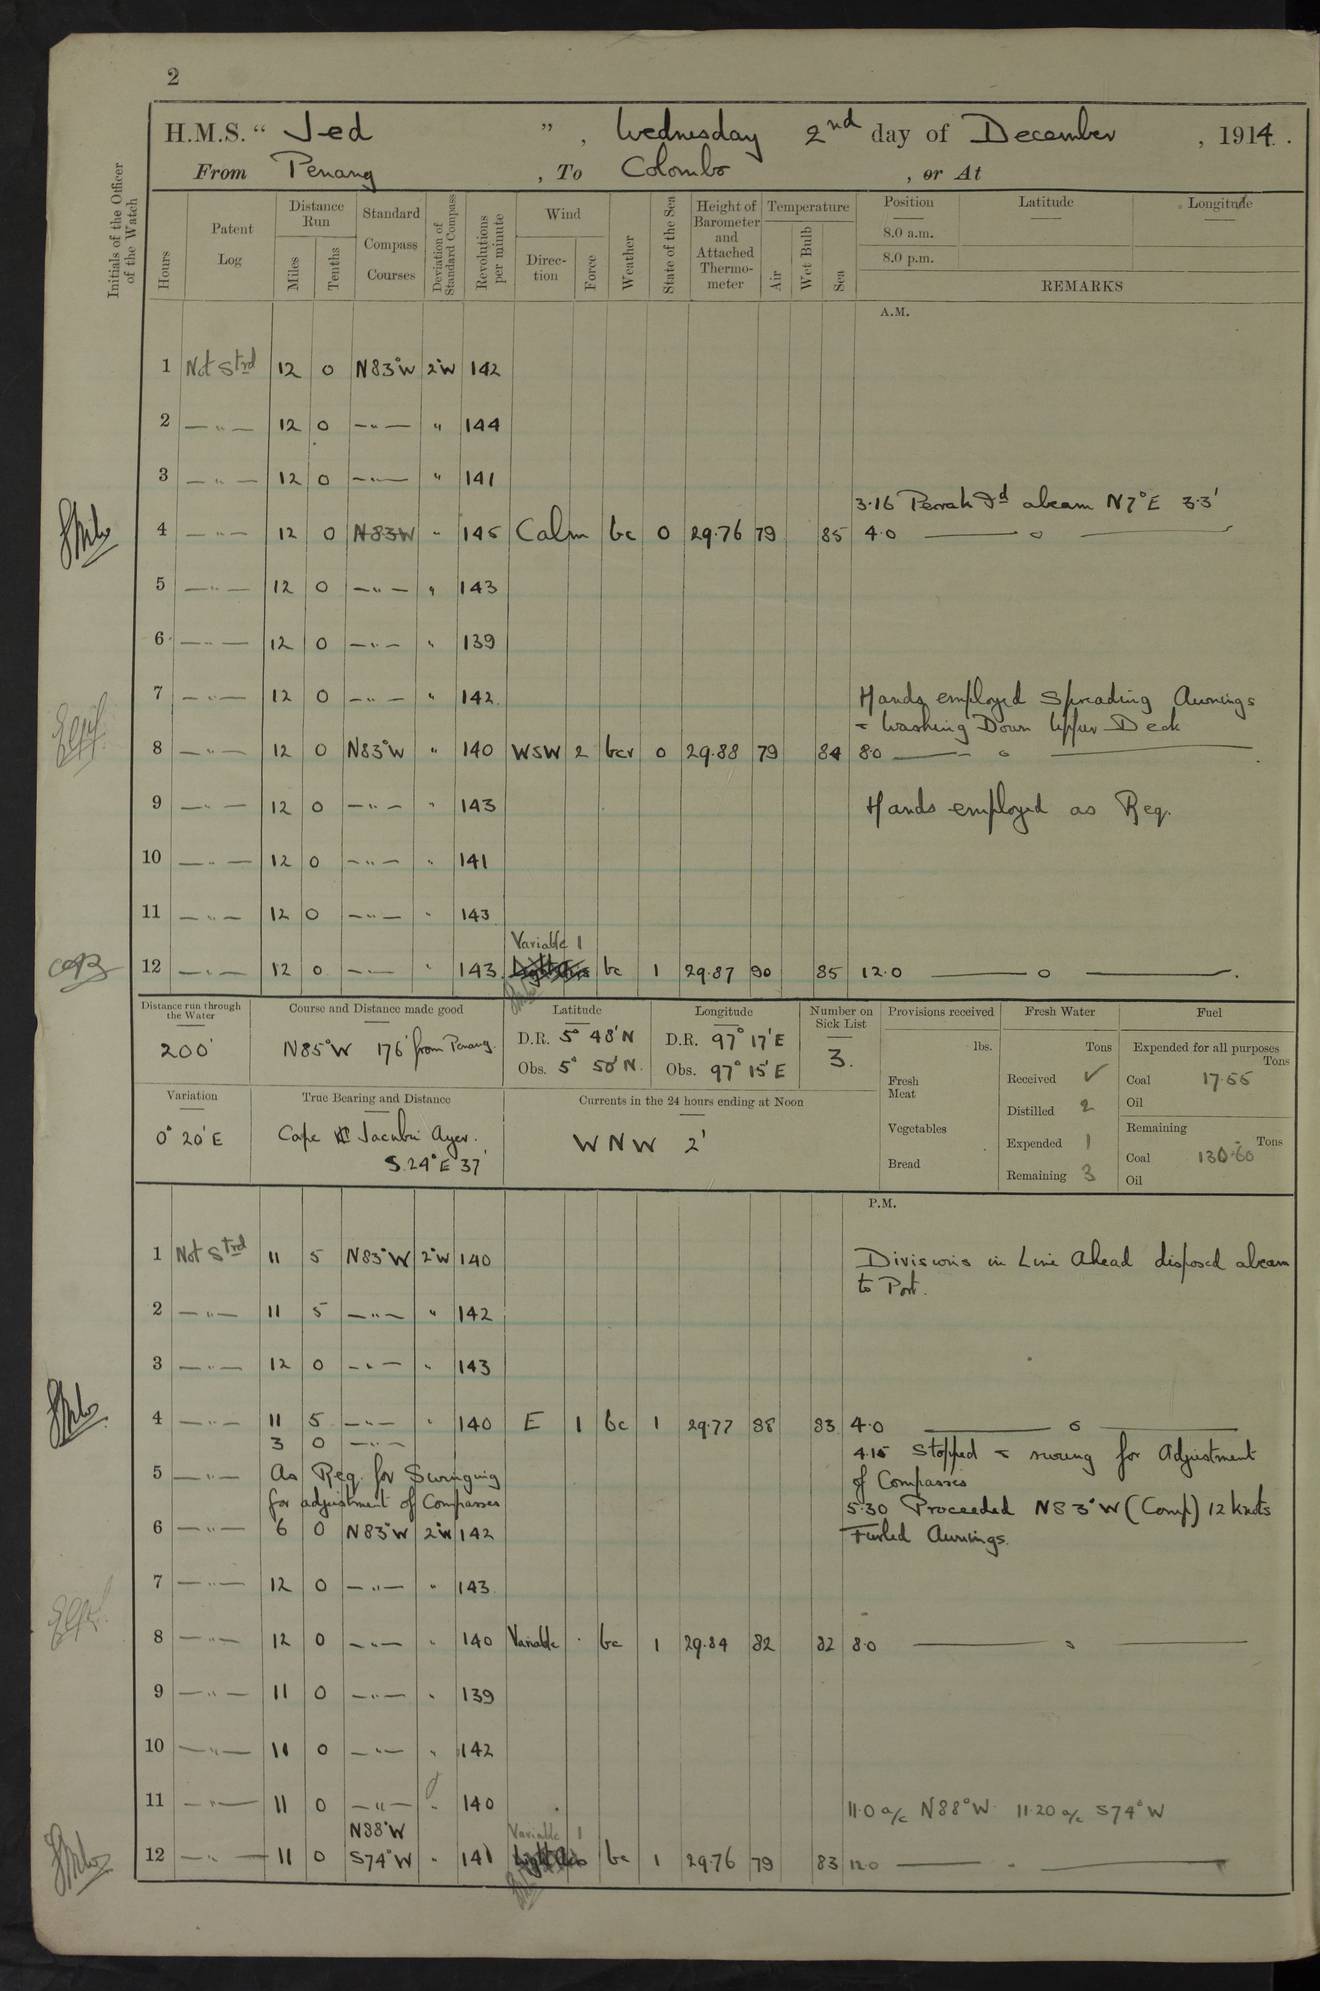 2
H.M.S. “ Jed ” , Wednesday 2nd day of December , 1914 .
From Penang , To Colombo , or At
Initials of the Officer of the Watch
Hours
Patent Log
Distance Run
Miles
Tenths
Standard Compass Courses
Deviation of Standard Compass
Revolutions per minute
Wind
Direc-tion
Force
Weather
State of the Sea
Height of Barometer and Attached Thermo-meter
Temperature
Air
Wet Bulb
Sea
Position Latitude Longitude
8.0 a.m.
8.0 p.m.
REMARKS
A.M.
1 Not Strd 12 0 N83°W 2°W 142
2 — " — 12 0 — " — " 144
3 — " — 12 0 — " — " 141
3.16 Perak Id abeam N7°E 3.3'
4 — " — 12 0 N83W " 145 Calm bc 0 29.76 79 85 4.0 — o —
5 — " — 12 0 — " — " 143
6 — " — 12 0 — " — " 139
7 — " — 12 0 — " — " 142 Hands employed Spreading Awnings
Washing Down Upper Deck
8 — " — 12 0 N83°W " 140 WSW 2 bcv 0 29.88 79 84 8.0 — o —
9 — " — 12 0 — " — " 143 Hands employed as Req.
10 — " — 12 0 — " — " 141
11 — " — 12 0 — " — " 143
Variable 1
12 — " — 12 0 — " — " 143 bc 1 29.87 90 85 12.0 — o —
Distance run through the Water
200'
Course and Distance made good
N85°W 176' from Penang.
Latitude
D.R. 5° 48' N
Obs. 5° 50' N.
Longitude
D.R. 97° 17' E
Obs. 97° 15' E
Number on Sick List
3.
Provisions received
lbs.
Fresh Meat
Vegetables
Bread
Fresh Water
Tons
Received ✓
Distilled 2
Expended 1
Remaining 3
Fuel
Expended for all purposes
Tons
Coal 17.55
Oil
Remaining
Tons
Coal 130.60
Oil
Variation
0° 20' E
True Bearing and Distance
Cape Jacubu Ayer.
S.24°E 37'
Currents in the 24 hours ending at Noon
WNW 2'
P.M.
1 Not Strd 11 5 N83°W 2°W 140 Divisions in Line Ahead disposed abeam
to Port.
2 — " — 11 5 — " — " 142
3 — " — 12 0 — " — " 143
4 — " — 11 5 — " — " 140 E 1 bc 1 29.77 88 83 4.0 — o —
3 0 — " —
4.15 Stopped swung for Adjustment
of Compasses
5 — " — As Req. for Swinging
for adjustment of Compasses
5.30 Proceeded N83°W (Comp) 12 knots
6 — " — 6 0 N83°W 2°W 142 Furled Awnings.
7 — " — 12 0 — " — " 143
8 — " — 12 0 — " — " 140 Variable . bc 1 29.84 82 82 8.0 — o —
9 — " — 11 0 — " — " 139
10 — " — 11 0 — " — " 142
11 — " — 11 0 — " — " 140 11.0 a/c N88°W 11.20 a/c S74°W
N88°W
Variable 1
12 — " — 11 0 S74°W " 141 bc 1 29.76 79 83 12.0 — " —